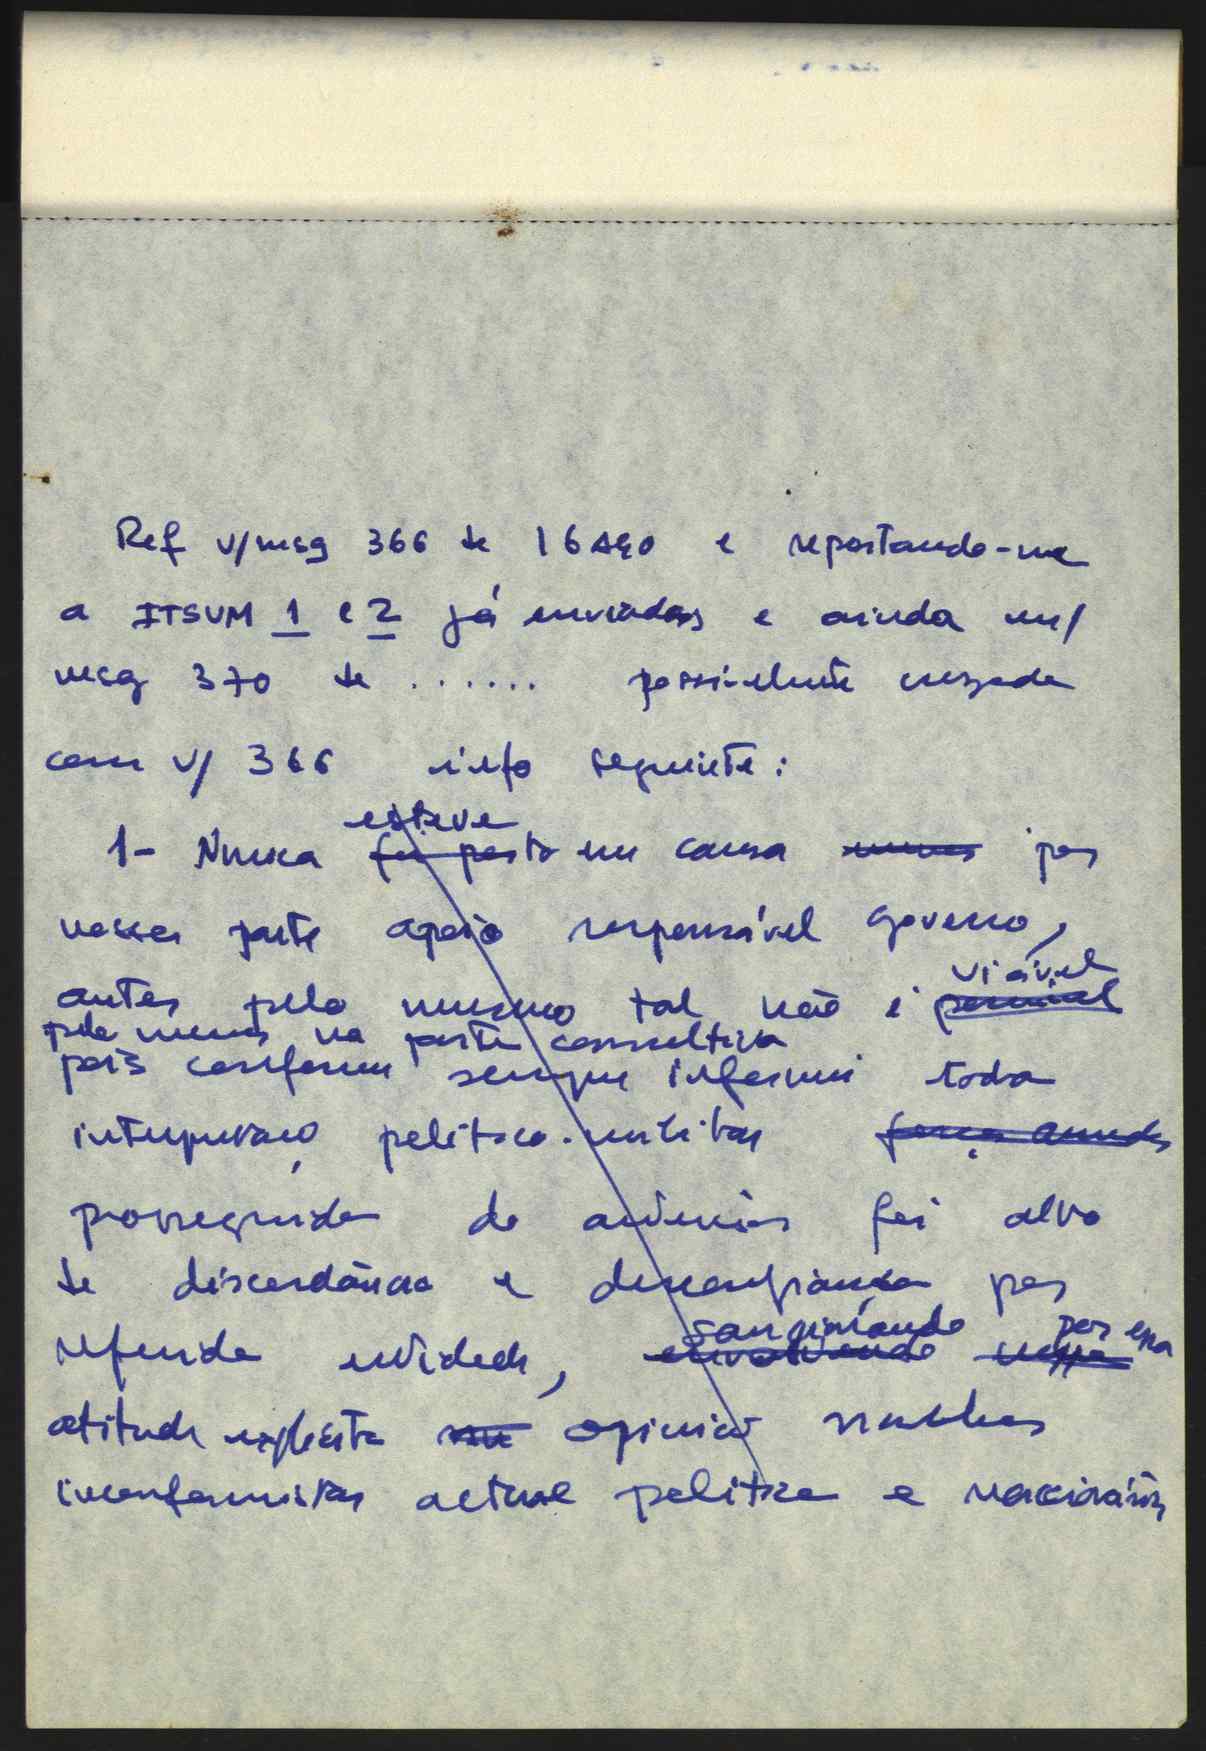 Ref v/msg 366 de 16AGO e reportando-me
a ITSUM 1 e 2 já enviadas e ainda m/
msg 370 de ...... possivelmente cruzada
com v/ 366 info seguinte:
esteve
1- Nunca foi posto em causa por
nossa parte apoio responsável Governo,
viável
antes pelo mesmo tal não é possível
pelo menos na parte consultiva
pois conforme sempre informei toda
politico-militar forças armadas
prosseguida do foi alvo
de discordância e desconfiança por
por essa
referida entidade, envolvendo
atitude explicita opinião
inconformistas actual politica e